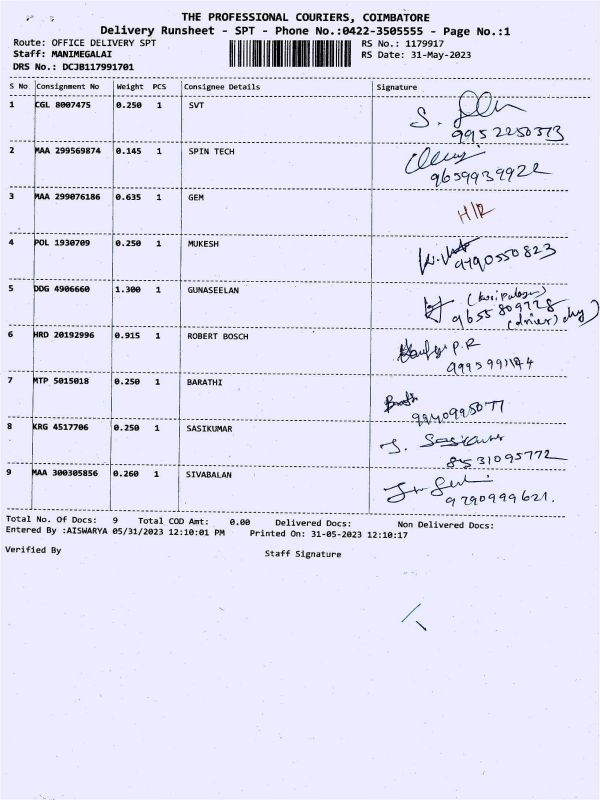 THE PROFESSIONAL COURIERS, COIMBATORE
Delivery Runsheet - SPT - Phone No.:0422-3505555 - Page No.:1
Route: OFFICE DELIVERY SPT RS No.: 1179917
Staff: MANIMEGALAI RS Date: 31-May-2023
DRS No.: DCJB117991701
S No Consignment No Weight PCS Consignee Details Signature
1 CGL 8007475 0.250 1 SVT S.
9952250373
2 MAA 299569874 0.145 1 SPIN TECH
9659939922
3 MAA 299076186 0.635 1 GEM H/R
4 POL 1930709 0.250 1 MUKESH
9790550823
5 DDG 4906660 1.300 1 GUNASEELAN
9655809728
(driver)
6 HRD 20192996 0.915 1 ROBERT BOSCH P.R
7 MTP 5015018 0.250 1 BARATHI Barathi
9940995077
8 KRG 4517706 0.250 1 SASIKUMAR Sasikumar
8531095772
9 MAA 300305856 0.260 1 SIVABALAN
9790999621.
Total No. Of Docs: 9 Total COD Amt: 0.00 Delivered Docs: Non Delivered Docs:
Entered By :AISWARYA 05/31/2023 12:10:01 PM Printed On: 31-05-2023 12:10:17
Verified By Staff Signature